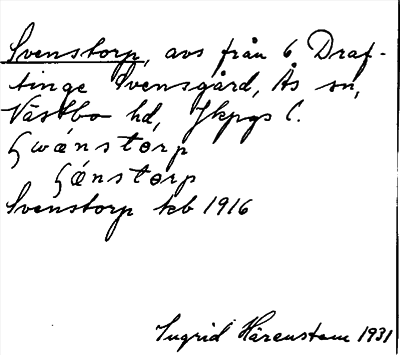 Svenstorp, avs från 6 Draf-
tinge Svensgård, Ås sn,
Västbo hd, Jkpgs l.
Svenstorp kb 1916
Ingrid Härenstam 1931